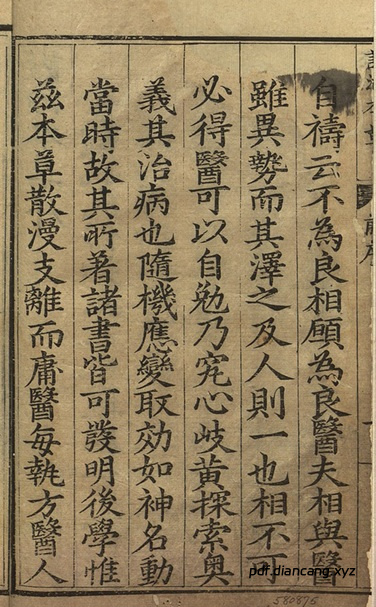 自禱云不為良相願為良醫夫相與醫
雖異勢而其澤之及人則一也相不可
必得醫可以自勉乃究心岐黄探索奥
義其治病也隨機應變取効如神名動
當時故其所著諸書皆可發明後學惟
兹本草散漫支離而庸醫每執方醫人
pdf.diancang.xyz
580876